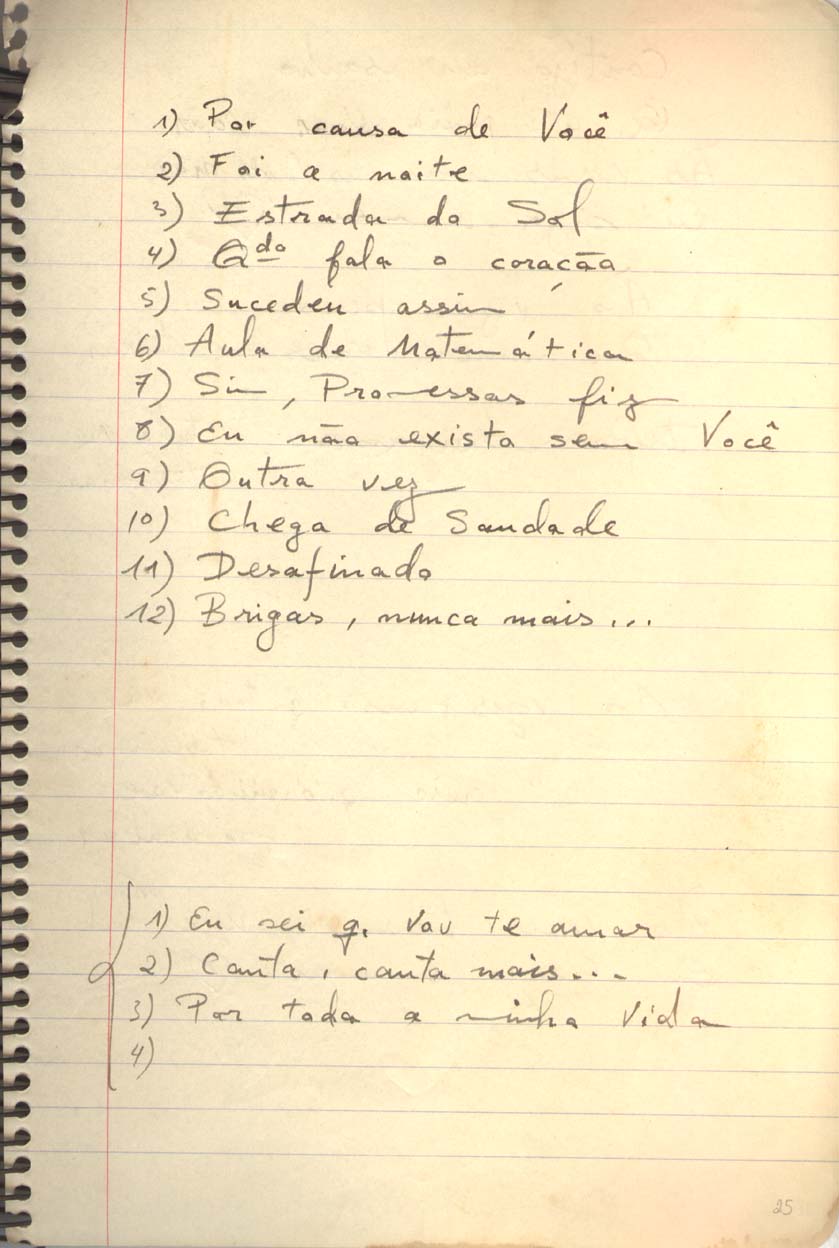 1) Por causa de Você
2) Foi a noite
3) Estrada do Sol
4) Qdo fala o coração
5) Sucedeu assim
6) Aula de Matemática
7) Sim, Promessas fiz
8) Eu não existo sem Você
9) Outra vez
10) Chega de Saudade
11) Desafinado
12) Brigas, nunca mais...
1) Eu sei q. Vou te amar
2) Canta, canta mais...
3) Por toda a minha Vida
4)
25